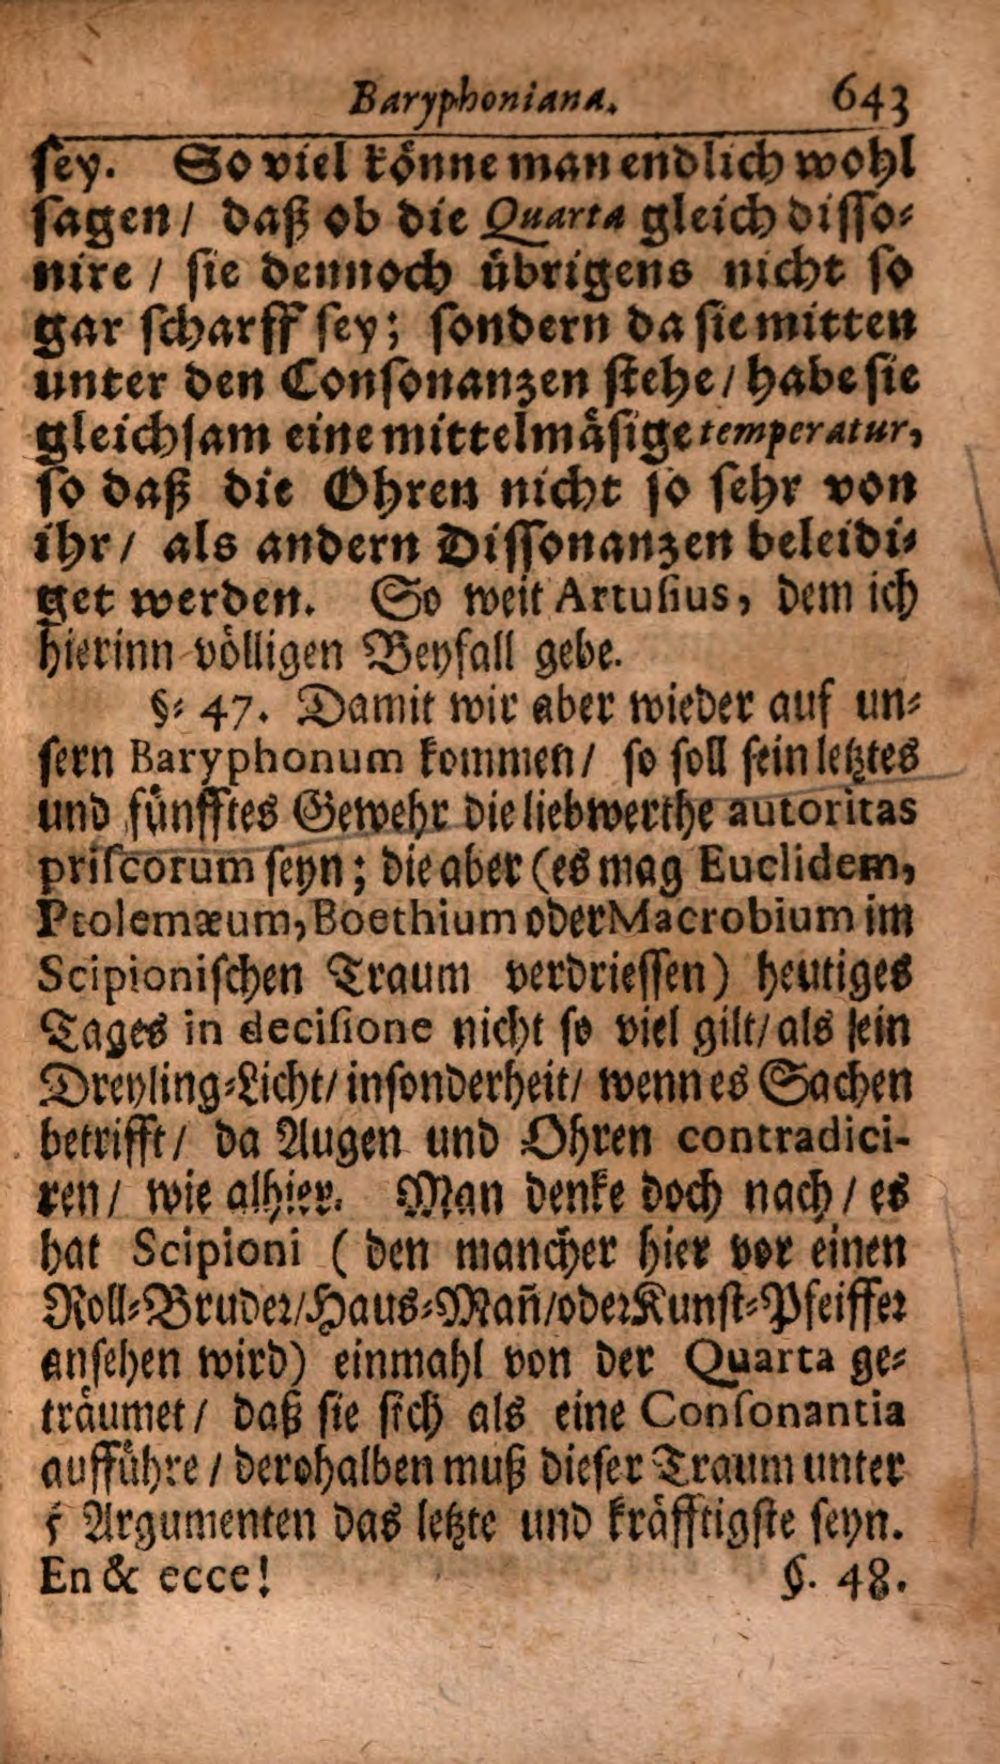 Baryphoniana. 643
sey. So viel könne man endlich wohl
sagen/ daß ob die Quarta gleich disso⸗
nire / sie dennoch übrigens nicht so
gar scharff sey; sondern da sie mitten
unter den Consonanzen stehe/ habe sie
gleichsam eine mittelmäsige temperatur,
so daß die Ohren nicht so sehr von
ihr/ als andern Dissonanzen beleidi⸗
get werden. So weit Artusius, dem ich
hierinn völligen Beyfall gebe.
§⸗ 47. Damit wir aber wieder auf un⸗
sern Baryphonum kommen/ so soll sein letztes
und fünfftes Gewehr die liebwerthe autoritas
priscorum seyn; die aber (es mag Euclidem,
Ptolemæum, Boethium oder Macrobium im
Scipionischen Traum verdriessen) heutiges
Tages in decisione nicht so viel gilt/ als sein
Dreyling⸗Licht/ insonderheit/ wenn es Sachen
betrifft/ da Augen und Ohren contradici-
ren/ wie alhier. Man denke doch nach/ es
hat Scipioni (den mancher hier vor einen
Roll⸗Bruder/Haus⸗Mañ/oder Kunst⸗Pfeiffer
ansehen wird) einmahl von der Quarta ge⸗
träumet/ daß sie sich als eine Consonantia
aufführe/ derohalben muß dieser Traum unter
5 Argumenten das letzte und kräfftigste seyn.
En & ecce! §. 48.